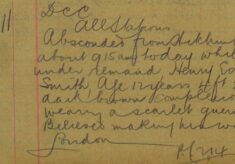 11
DCC
All Stations
Absconded from
about 9 15 am today
under remand Henry
Smith Age 12 years 4ft
dark brown complexion
wearing a scarlet
Believed making his
London